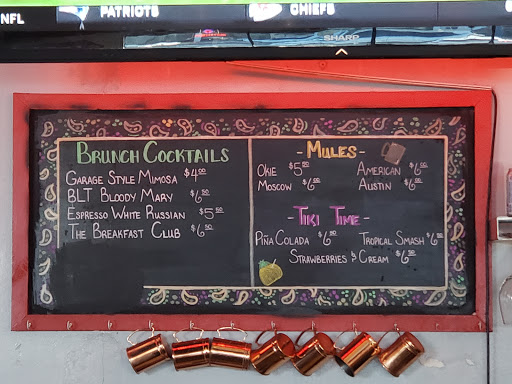 NFL PATRIOTS CHIEFS
SHARP
BRUNCH COCKTAILS
GARAGE STYLE MIMOSA $4.00
BLT BLOODY MARY $6.50
ESPRESSO WHITE RUSSIAN $5.50
THE BREAKFAST CLUB $6.50
- MULES -
OKIE $5.00 AMERICAN $6.00
MOSCOW $6.00 AUSTIN $6.00
- TIKI TIME -
PIÑA COLADA $6.00 TROPICAL SMASH $6.00
STRAWBERRIES & CREAM $6.50